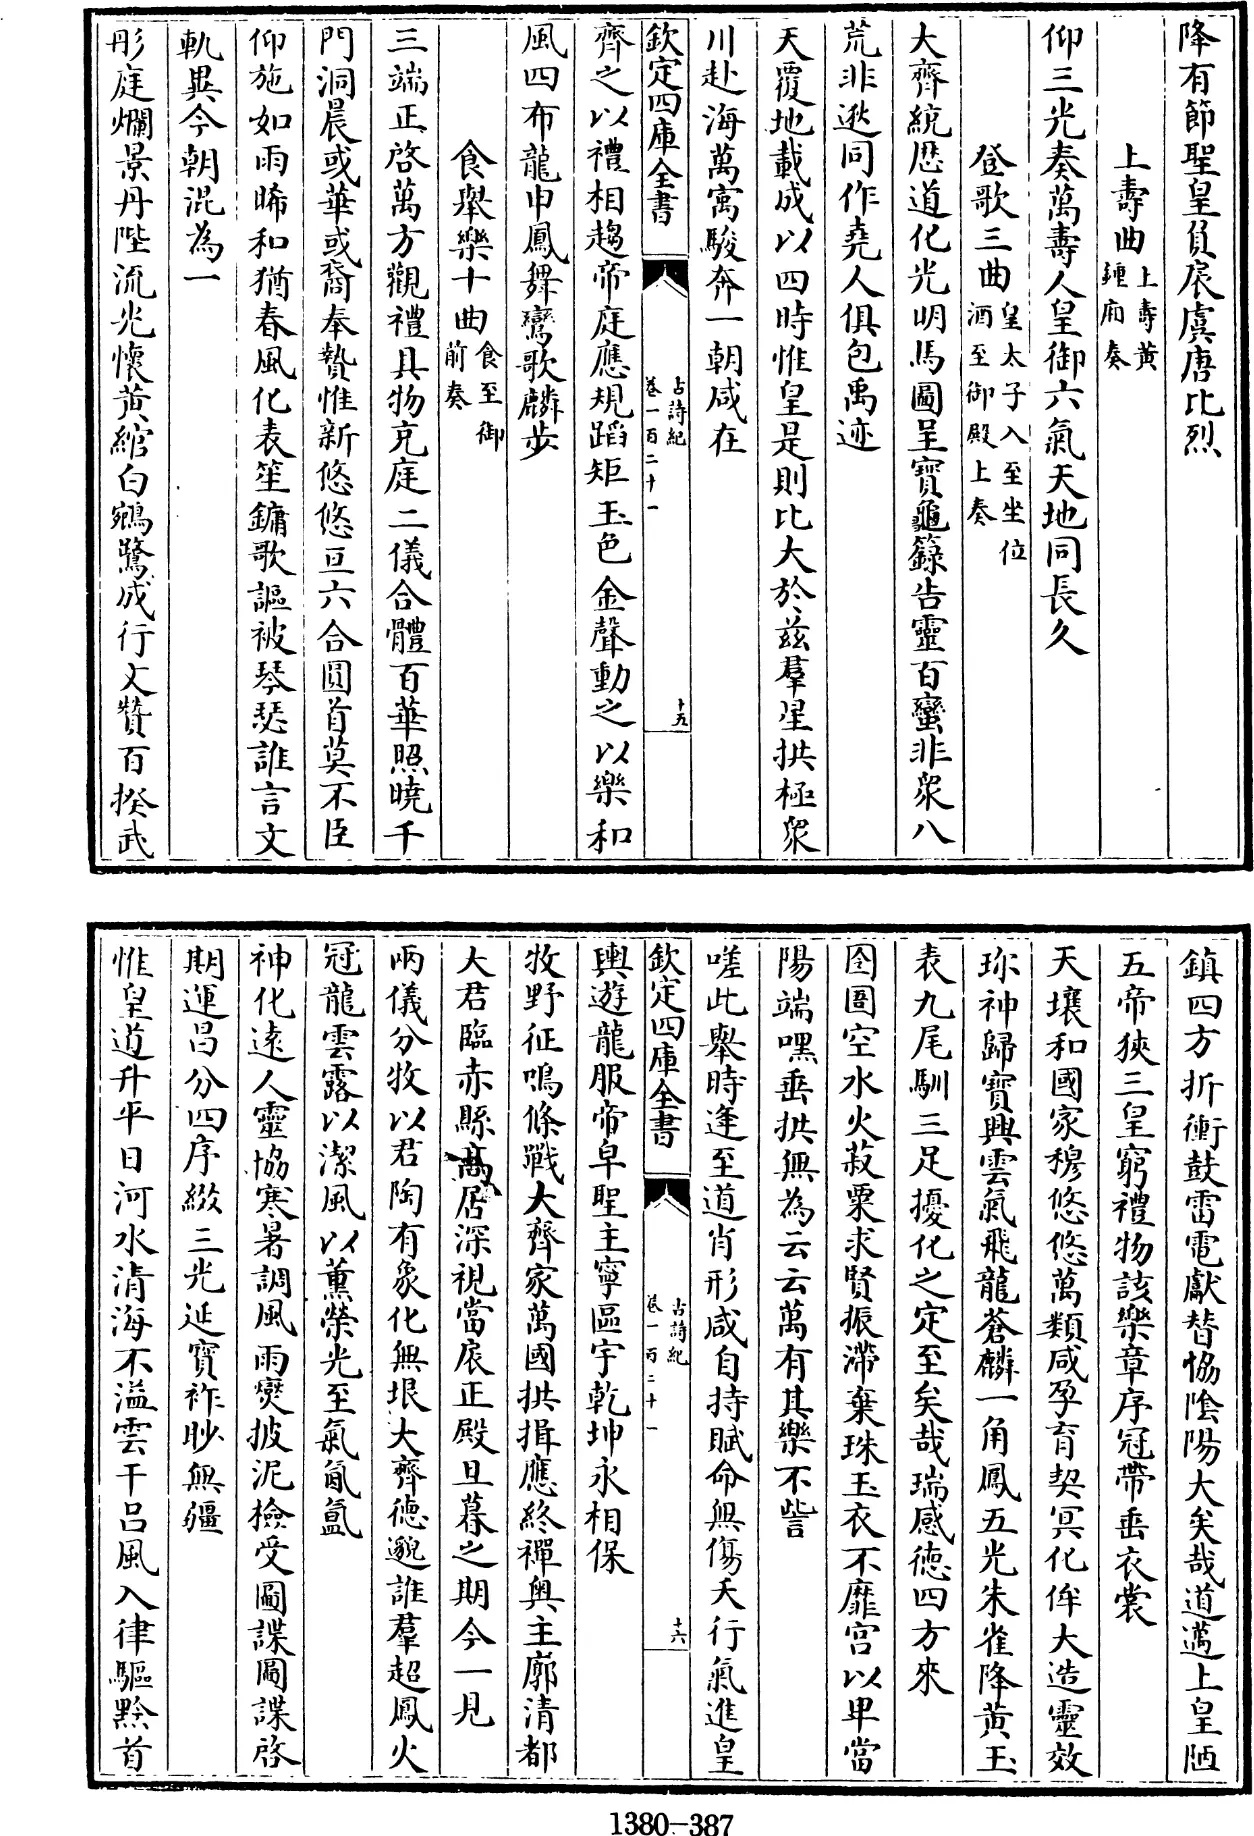 降有節聖皇負扆虞唐比烈
上壽曲上壽黃鍾廂奏
仰三光奏萬壽人皇御六氣天地同長久
登歌三曲皇太子入至坐位酒至御殿上奏
大齊統歷道化光明馬圖呈寶龜籙告靈百蠻非衆八
荒非逖同作堯人俱包禹迹
天覆地載成以四時惟皇是則比大於兹羣星拱極衆
川赴海萬㝢駿奔一朝咸在
欽定四庫全書
古詩紀
卷一百二十一
十五
齊之以禮相趨帝庭應規蹈矩玉色金聲動之以樂和
風四布龍申鳳舞鸞歌麟步
食舉樂十曲食至御前奏
三端正啓萬方觀禮具物充庭二儀合體百華照曉千
門洞晨或華或裔奉贄惟新悠悠亘六合圓首莫不臣
仰施如雨晞和猶春風化表笙鏞歌謳被琴瑟誰言文
軌異今朝混為一
彤庭爛景丹陛流光懷黃綰白鵷鷺成行文贊百揆武
鎮四方折衝鼓雷電獻替恊隂陽大矣哉道邁上皇陋
五帝狹三皇窮禮物該樂章序冠帶垂衣裳
天壤和國家穆悠悠萬類咸孕育契冥化侔大造靈效
珎神歸寳興雲氣飛龍蒼麟一角鳳五光朱雀降黃玉
表九尾馴三足擾化之定至矣哉瑞感徳四方來
囹圄空水火菽粟求賢振滯棄珠玉衣不靡宫以卑當
陽端嘿垂拱無為云云萬有其樂不訾
嗟此舉時逢至道肖形咸自持賦命無傷夭行氣進皇
欽定四庫全書
古詩紀
卷一百二十一
十六
輿遊龍服帝皁聖主寧區宇乾坤永相保
牧野征鳴條戰大齊家萬國拱揖應終禪奥主廓清都
大君臨赤縣髙居深視當扆正殿旦暮之期今一見
兩儀分牧以君陶有象化無垠大齊徳邈誰羣超鳳火
冠龍雲露以潔風以薫榮光至氣氤氲
神化逺人靈恊寒暑調風雨燮披泥檢受圖諜圖諜啓
期運昌分四序綴三光延寶祚眇無疆
惟皇道升平日河水清海不溢雲干吕風入律驅黔首
1380-387